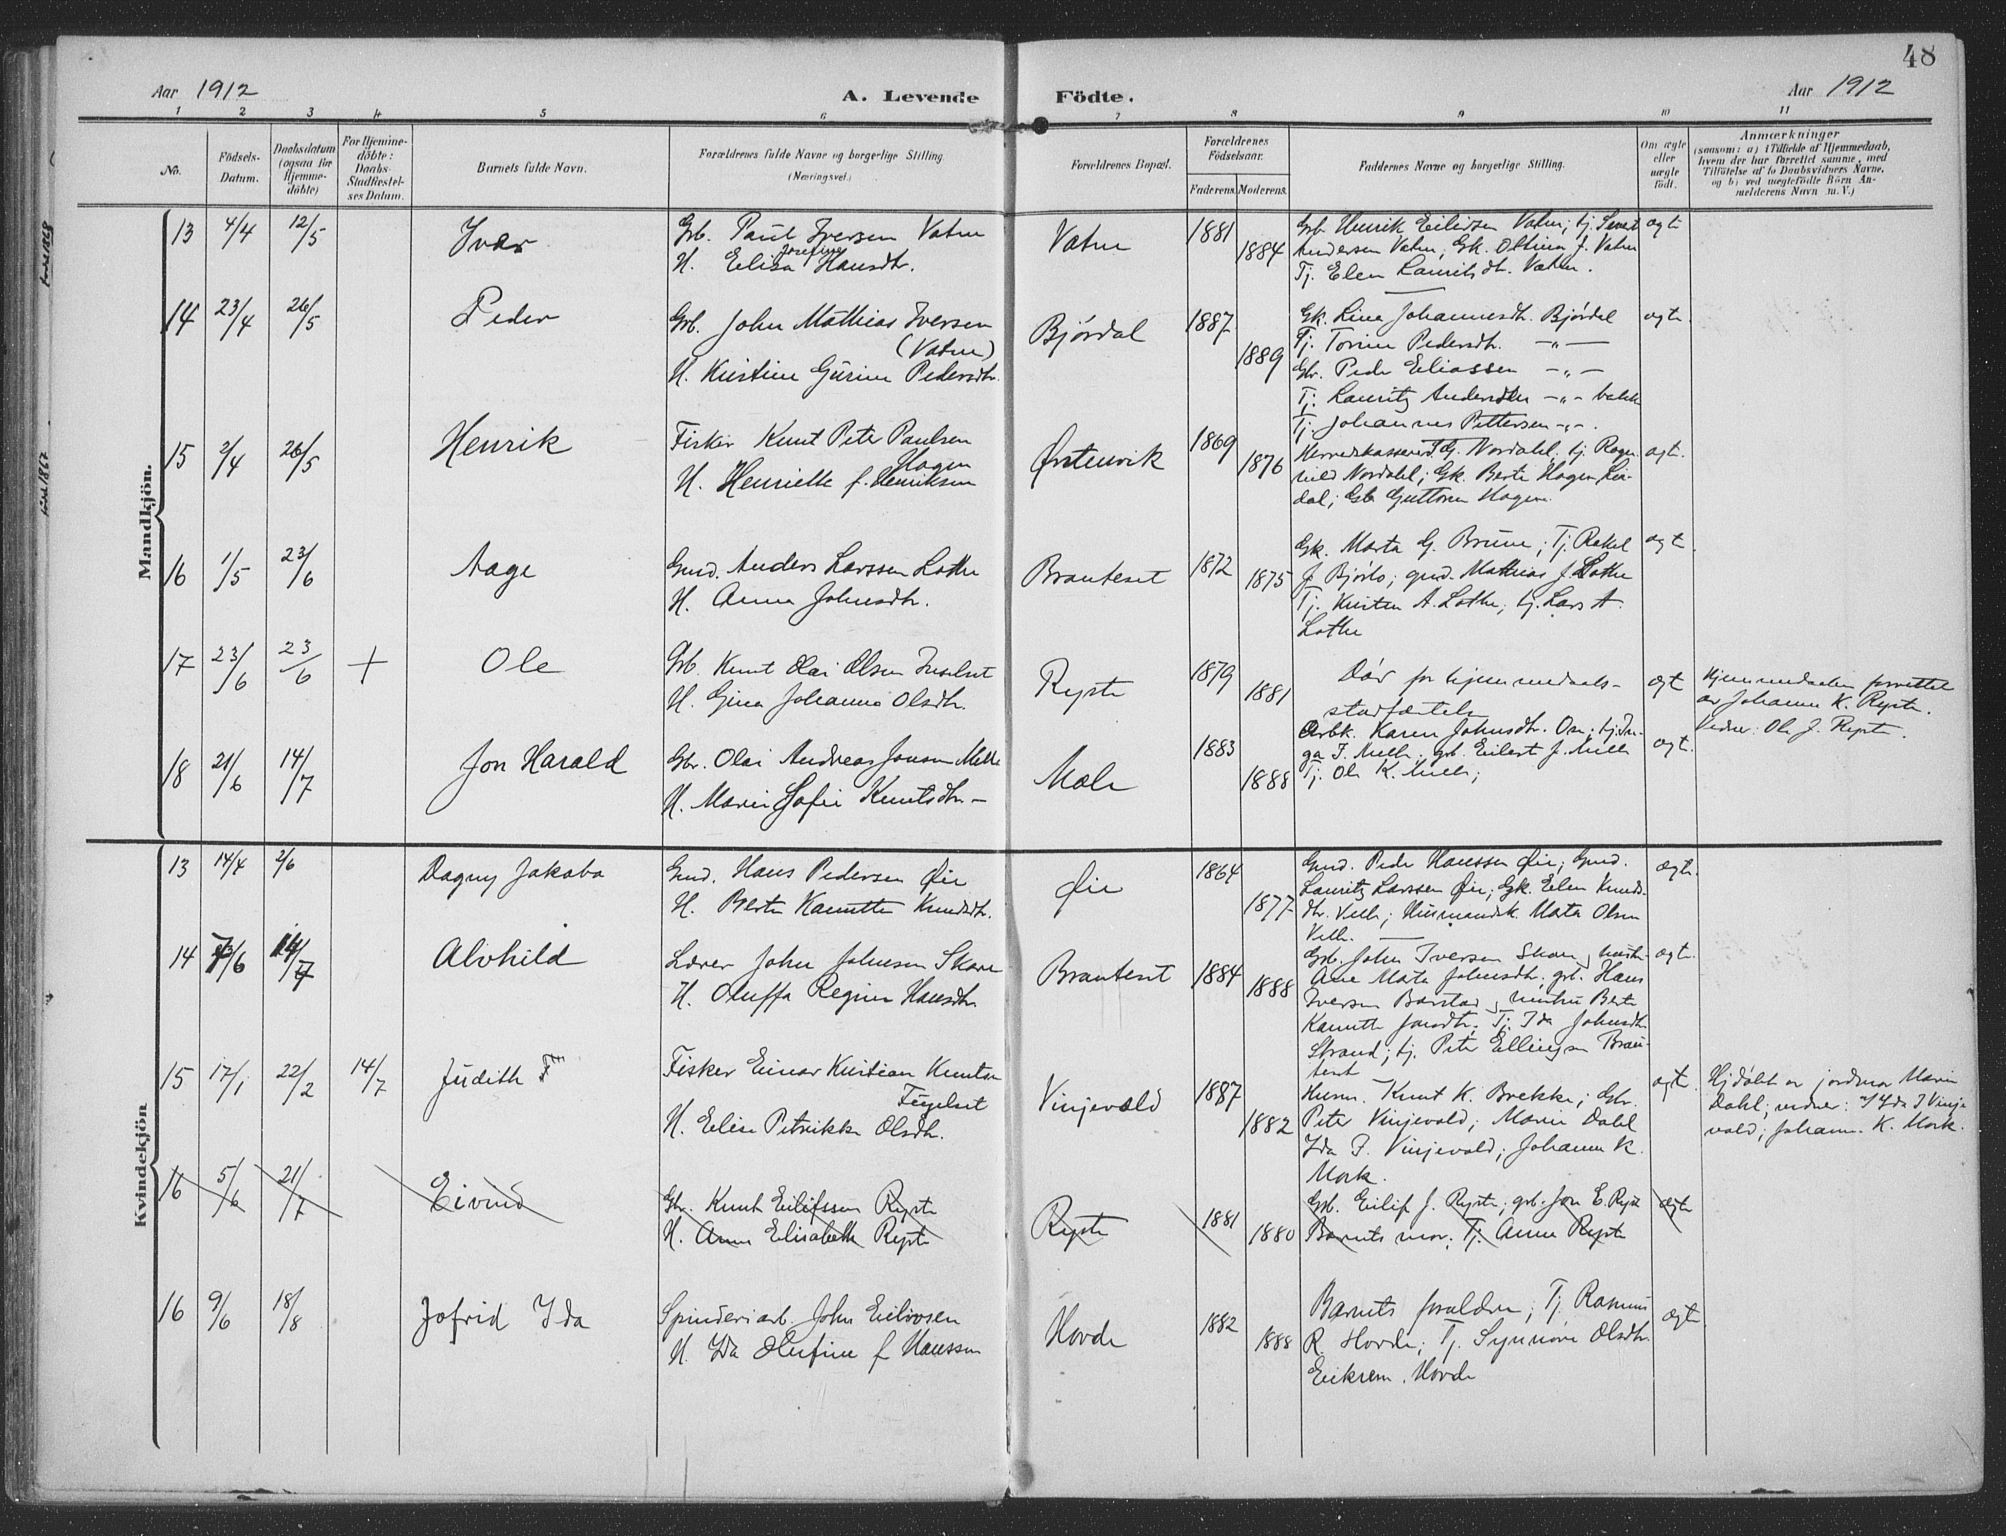 48
Aar 1912
A. Levende Födte.
Aar 1912
1 2 3 4 5 6 7 8 9 10 11
No.
Födsels-
Datum.
Daabsdatum
(ogsaa for
Hjemme-
döbte)
For Hjemme-
döbte:
Daabs-
Stadfæstel-
ses Datum.
Barnets fulde Navn.
Forældrenes fulde Navne og borgerlige Stilling
(Næringsvei.)
Forældrenes Bopæl.
Forældrenes
Födselsaar.
Faderens. Moderens.
Faddernes Navne og borgerlige Stilling.
Om ægte
eller
uægte
födt.
Anmærkninger
(saasom: a) i Tilfælde af Hjemmedaab,
hvem der har forrettet samme, med
Tilföielse af to Daabsvidners Navne,
og b) ved uægtefödte Börn An-
melderens Navn m. V.)
Mandkjön.
13 4/4 12/5 Ivar
Grb. Paul Iversen Vatne
H. Elisa Josefine Hansdtr.
Vatne 1881 1884
Grb. Henrik Eilivsen Vatne; tj. Sivert
Andersen Vatne, Gk. Oltina J. Vatne
Tj. Elen Lauritsdtr. Vatne.
ægte
14 23/4 26/5 Peder
Grb. John Mathias Iversen
(Vatne)
H. Kristine Gurine Pedersdtr.
Bjørdal 1887 1889
Gk. Lina Johannesdtr. Bjørdal
Tj. Torine Pedersdtr. —"—
Gbr. Peder Eliassen —"—
Tj. Lauritz Andersdtr —"— bakk
Tj. Johannes Pettersen —"—.
ægte.
15 2/4 26/5 Henrik
Fisker Knut Peter Paulsen
Hagen
H. Henriette f. Henriksen
Ørstenvik 1869 1876
Herredskasserer J. G. Nordahl, tj. Ragn
hild Nordahl; Gk. Berte Hagen Lia-
dal; Grb. Guttorm Hagen.
ægt.
16 1/5 23/6 Aage
Gmd. Anders Larssen Lothe
H. Anna Johnsdtr.
Branteset 1872 1875
Gk. Marta G. Brune; Tj. Rakel
J Bjørlo; gmd. Mathias J. Lothe
Tj. Kristen A. Lothe; tj. Lars A.
Lothe
ægt
17 23/6 23/6 + Ole
Grb. Knut Olai Olsen
H. Gina Johanna Olsdtr.
Rypte 1879 1881
Dør før hjemmedaabs-
stadfæstelse
ægt
Hjemmedaaben forrettet
av Johanne K. Rypte.
Vidner: Ole J. Rypte.
18 21/6 14/7 Jon Harald
Gbr. Olai Andreas Jonsen Melle
H. Marie Sofie Knutsdtr —
Mele 1883 1888
Arbk. Karen Johnsdtr. Ose; tj. In-
ga J. Melle; grb. Eilert J. Melle
Tj. Ole K. Melle;
ægt.
Kvindekjön
13 14/4 2/6 Dagny Jakoba
Gmd. Hans Pedersen Øie
H. Berte Kanutte Knudsdtr.
Øie 1864 1877
Gmd. Peder Hanssen Øie; Gmd.
Lauritz Larssen Øie; Gk. Elen Knuds-
dtr. Velle; Husmandsk. Mata Olsen
Velle.
ægte.
14 /6 14/7 Alvhild
Lærer John Johnsen Skare
H. Oluffa Regine Hansdtr
Branteset 1884 1888
Grb. John Iversen Skare, hustru
Ane Mata Johnsdtr. grb. Hans
Iversen Barstad, hustru Berte
Kanutte Jonsdtr; Tj. Ida Johnsdtr
Strand; tj. Peter Ellingsen Bran-
teset
ægt.
15 17/1 22/2 14/7 Judith F
Fisker Einar Kristian Knutsen
Fugelset
H. Elise Petrikke Olsdtr.
Vinjevold 1887 1882
Husm. Knut K. Brekke; Gbr.
Peter Vinjevold; Marie Dahl
Ida J. Vinjevold; Johanne K.
Mork.
ægt.
Hj.døbt av jordmor Marie
Dahl; vidner: Ida J Vinje
vold; Johanne K. Mork.
16 5/6 21/7 Eivind
Gbr. Knut Eilifssen Rypte
H. Anne Elisabeth Rypte
Rypte 1881 1880
Grb. Eilif J. Rypte; grb. Jon E. Rypte
Barnets mor; Tj. Anne Rypte
ægte
16 9/6 18/8 Jofrid Ida
Spinderiarb. John Eilivsen
H. Ida Olufine f Hanssen
Hovde 1882 1888
Barnets forældre; Tj. Rasmus
R. Hovde; Tj. Synnøve Olsdtr.
Eiksem. Hovde
ægt.